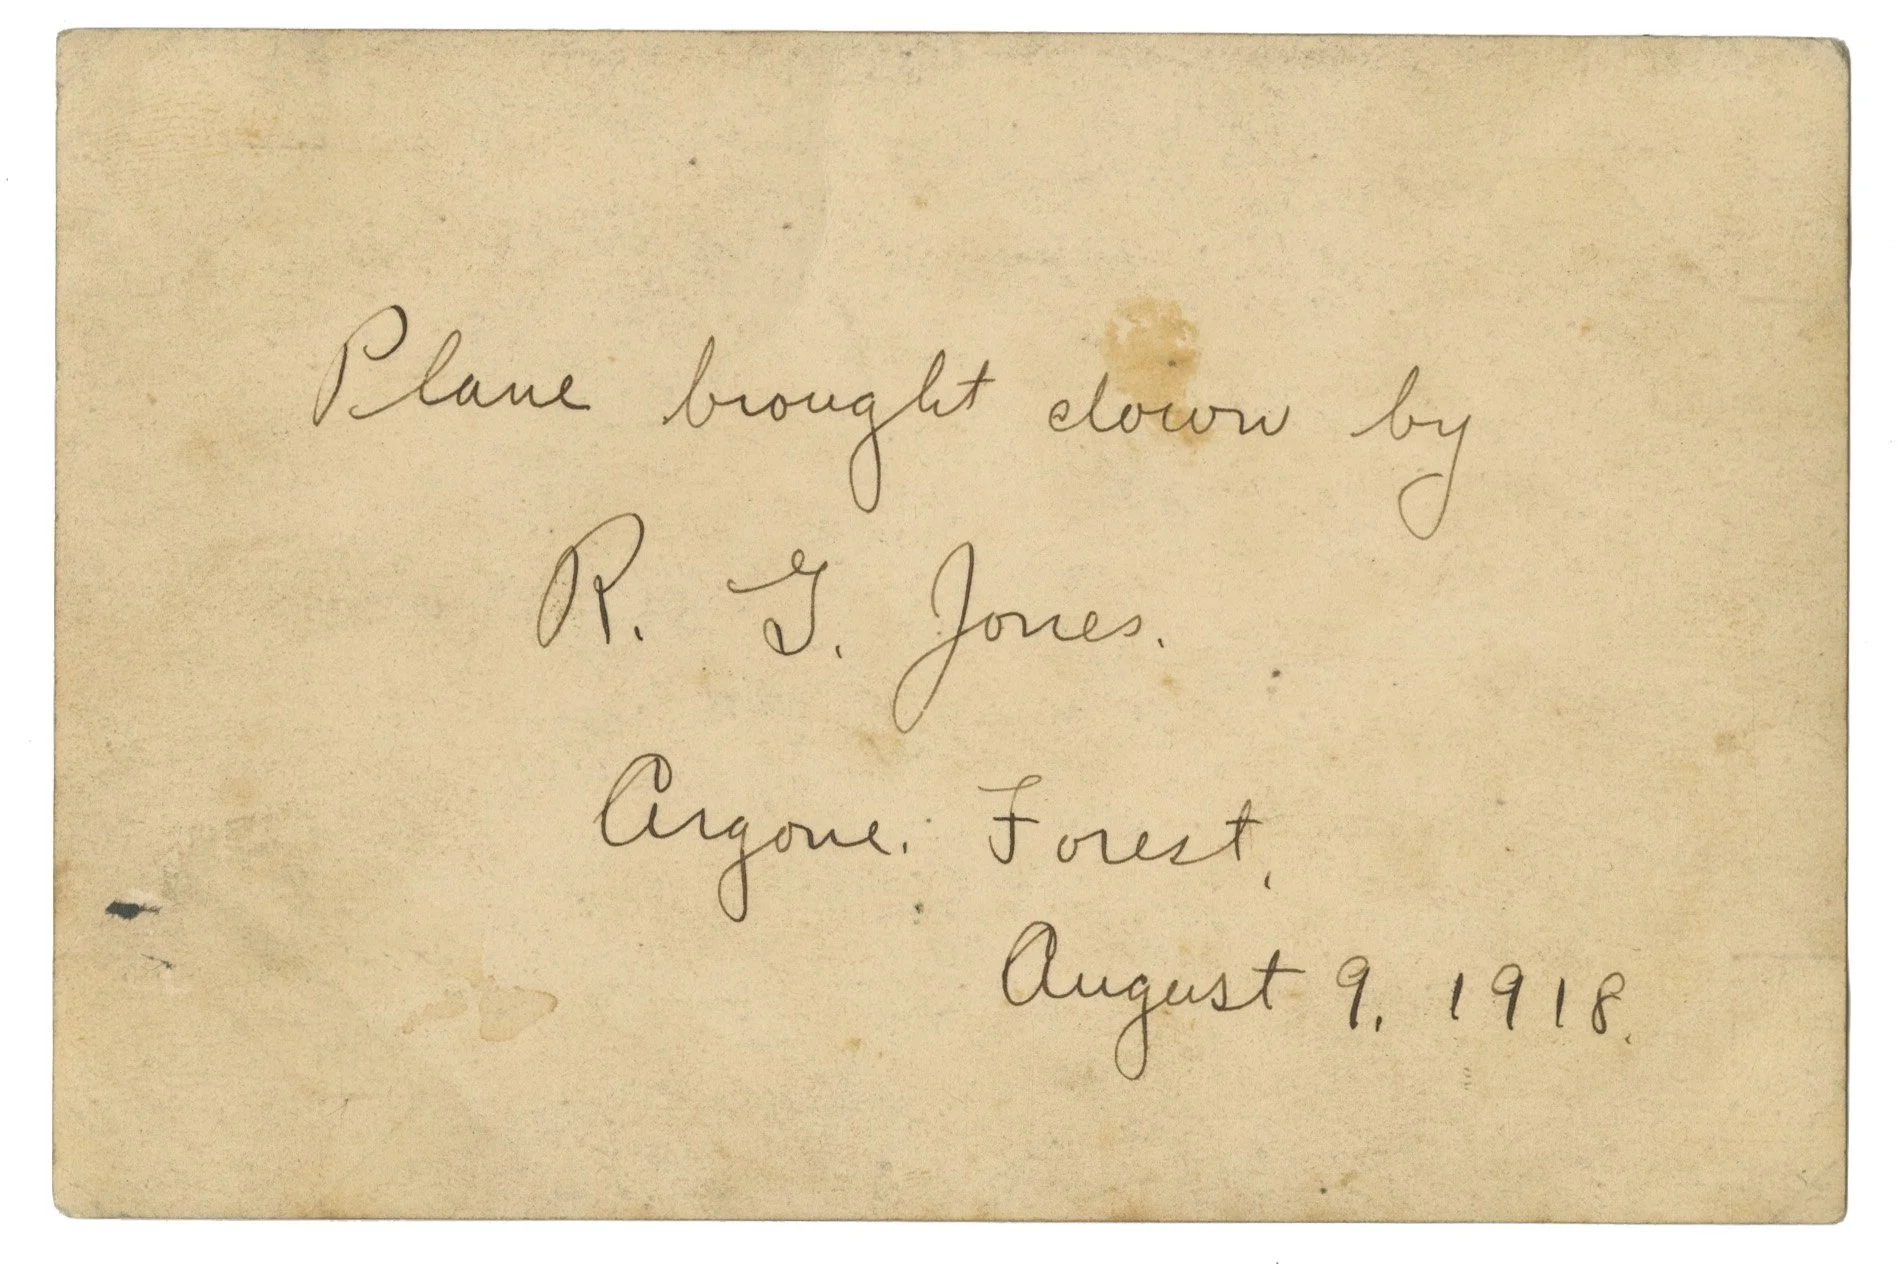 Plane brought down by
R. G. Jones.
Argone. Forest,
August 9, 1918.